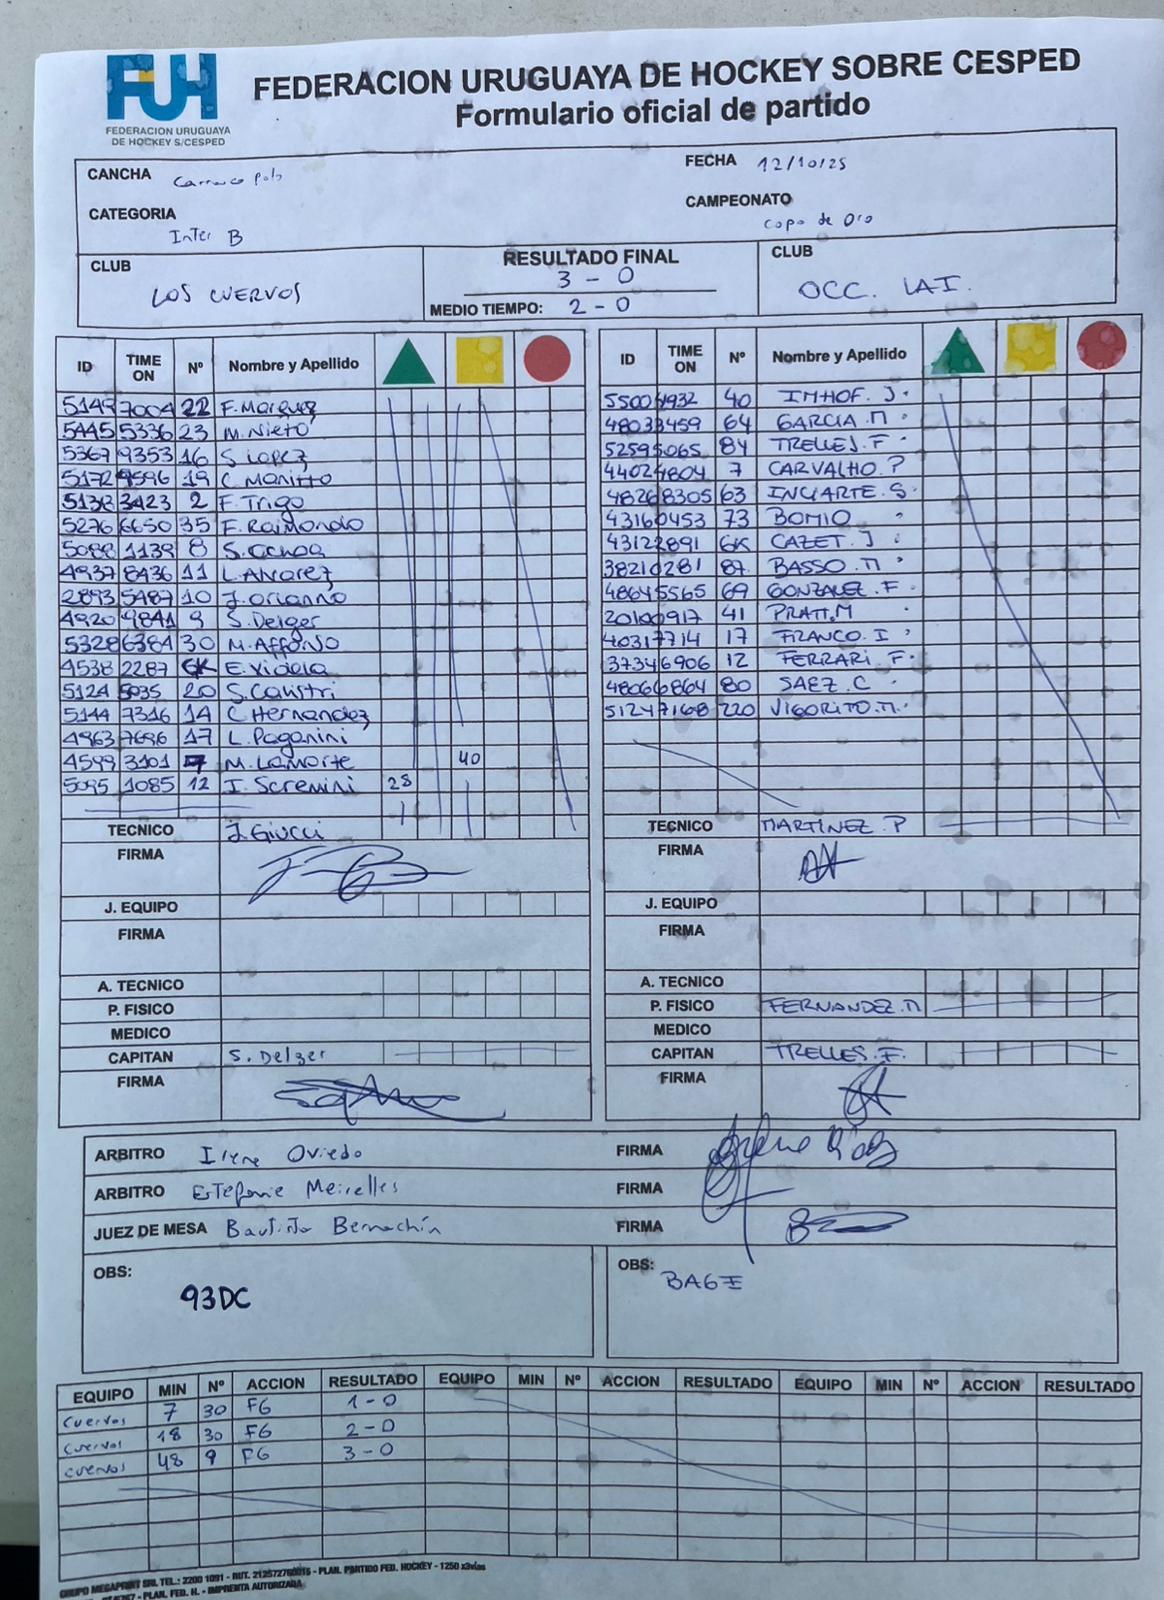 FUH
FEDERACION URUGUAYA
DE HOCKEY S/CESPED
FEDERACION URUGUAYA DE HOCKEY SOBRE CESPED
Formulario oficial de partido
CANCHA Carrasco Polo FECHA 12/10/25
CATEGORIA Inter B CAMPEONATO Copa de Oro
CLUB LOS CUERVOS RESULTADO FINAL 3 - 0 CLUB OCC. LAI.
MEDIO TIEMPO: 2 - 0
ID TIME ON Nº Nombre y Apellido
5149 7004 22 F. Marquez
5445 5336 23 M. Nieto
5367 9353 16 S Lopez
5172 9596 19 C. Manitto
5138 3423 2 F. Trigo
5276 6650 35 F. Raimondo
5088 1139 8 S. Ochoa
4937 8436 11 L. Alvarez
2893 5487 10 J. Orianno
4920 9841 9 S. Delger
5328 6384 30 M. Affonso
4538 2287 GK E. Videla
5124 5035 20 S. Caustri
5144 7316 14 C. Hernandez
4963 7696 17 L. Paganini
4599 3101 7 M. Lamarte 40
5095 1085 12 I. Scremini 28
TECNICO J. Giucci
FIRMA
J. EQUIPO
FIRMA
A. TECNICO
P. FISICO
MEDICO
CAPITAN S. Delger
FIRMA
ID TIME ON Nº Nombre y Apellido
55001932 40 IMHOF. J.
48033459 64 GARCIA. M
52595065 84 TRELLES. F
44024804 7 CARVALHO. P
48268305 63 INCIARTE. S.
43160453 73 BOMIO
43122891 GK CAZET. J
38210281 87. BASSO. M
48645565 69 GONZALEZ. F
20100917 41 PRATI. M
40317714 17 FRANCO. I
37346906 12 FERRARI. F.
48066864 80 SAEZ. C
51247168 220 VIGORITO. M.
TECNICO MARTINEZ. P
FIRMA
J. EQUIPO
FIRMA
A. TECNICO
P. FISICO FERNANDEZ. M
MEDICO
CAPITAN TRELLES. F.
FIRMA
ARBITRO Irene Oviedo FIRMA
ARBITRO Estefanie Meirelles FIRMA
JUEZ DE MESA Bautista Bernachin FIRMA
OBS: 93DC
OBS: BAGE
EQUIPO MIN Nº ACCION RESULTADO EQUIPO MIN Nº ACCION RESULTADO EQUIPO MIN Nº ACCION RESULTADO
Cuervos 7 30 FG 1 - 0
Cuervos 18 30 FG 2 - 0
Cuervos 48 9 FG 3 - 0
GRUPO MEGAPRINT SRL TEL.: 2200 1091 - RUT. 212572760015 - PLAN. PARTIDO FED. HOCKEY - 1250 x3vias
- PLAN. FED. H. - IMPRENTA AUTORIZADA